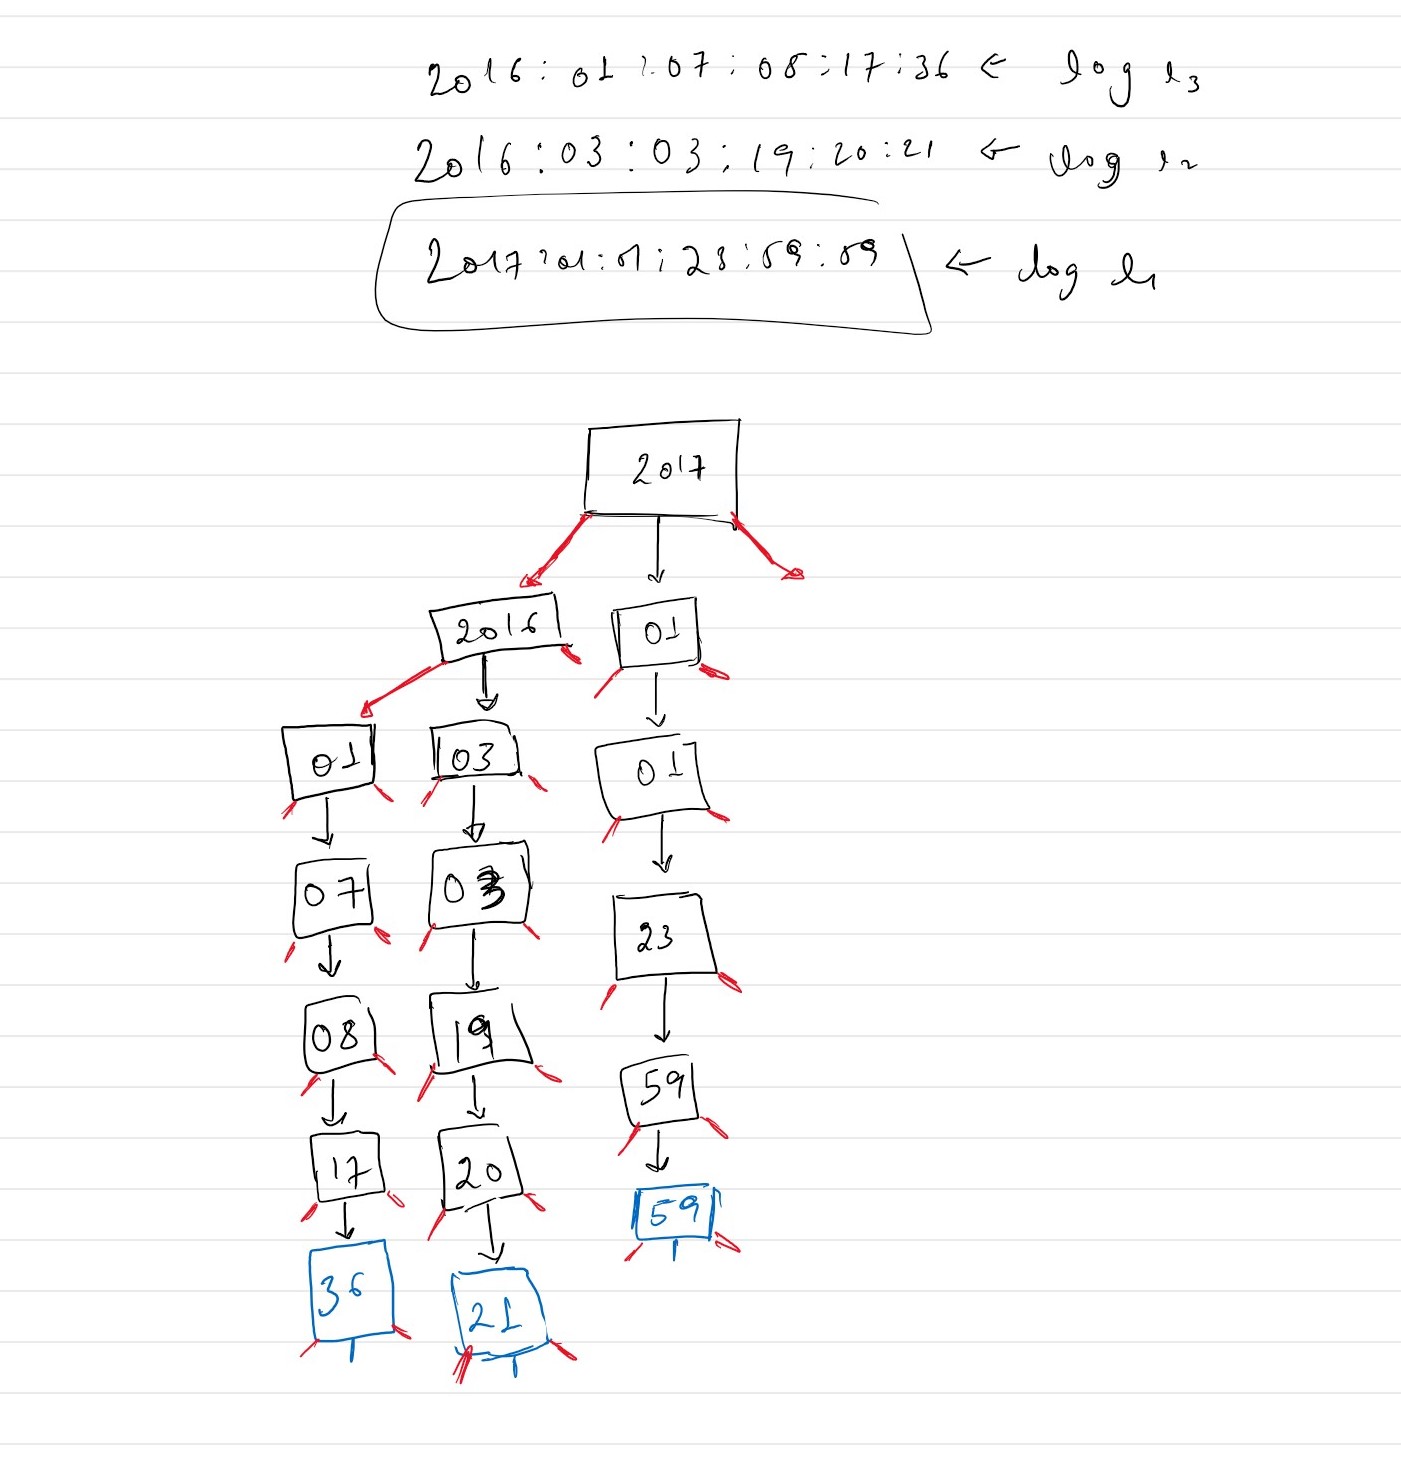 2016:01:07:08:17:36 ← log l3
2016:03:03:19:20:21 ← log l2
2017:01:01:23:59:59 ← log l1
2017
2016 01
01 03 01
07 03 23
08 19 59
17 20 59
36 21